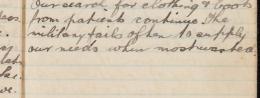 Our search for clothing & boots
from patients continue. The
military fails often to supply
our needs when most wanted.